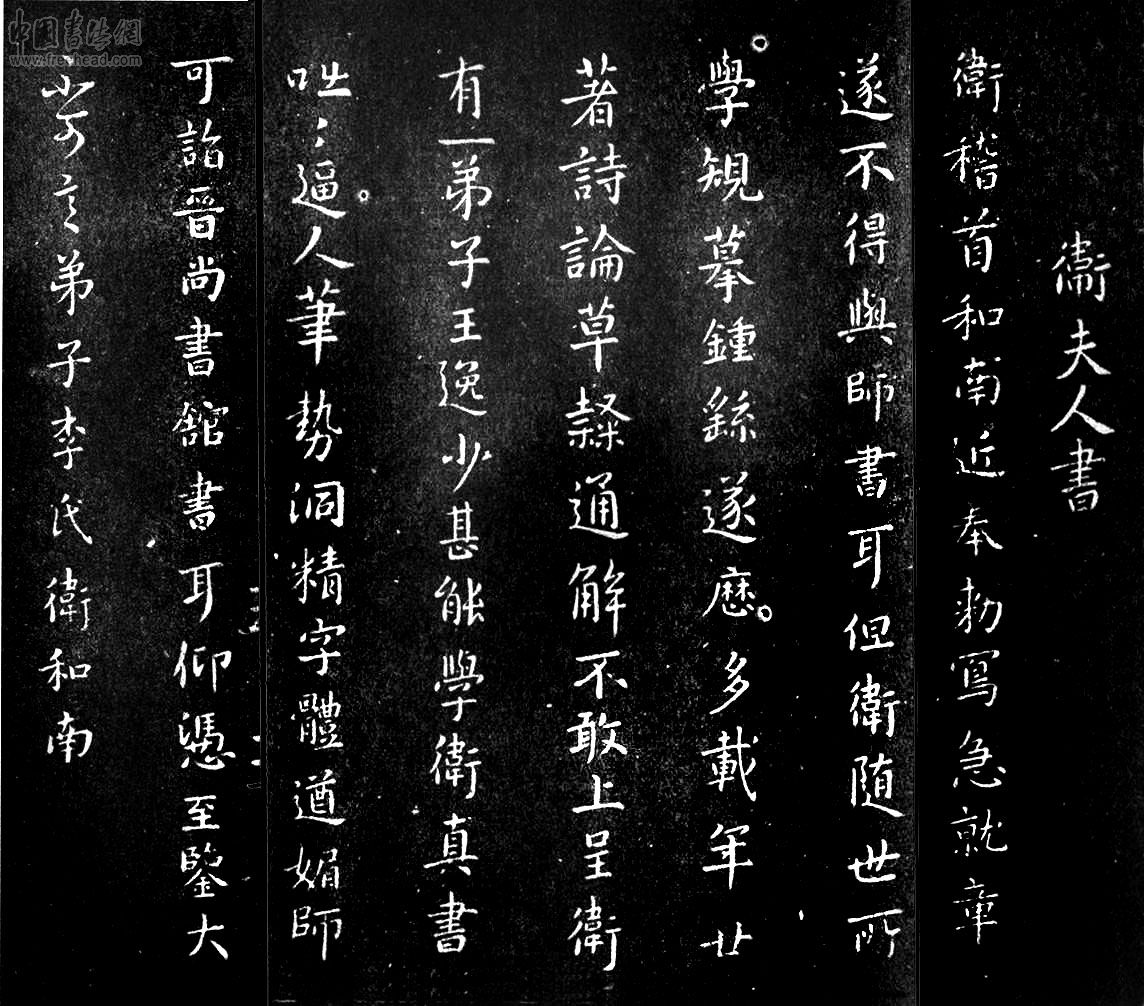 衛夫人書
衛稽首和南近奉勑寫急就章
遂不得與師書耳但衛隨世所
學規摹鍾繇遂歷多載年廿
著詩論草隸通解不敢上呈衛
有一弟子王逸少甚能學衛真書
咄〻逼人筆勢洞精字體遒媚師
可詣晉尚書舘書耳仰憑至鑒大
不可言弟子李氏衛和南
中国書法網
www.freehead.com